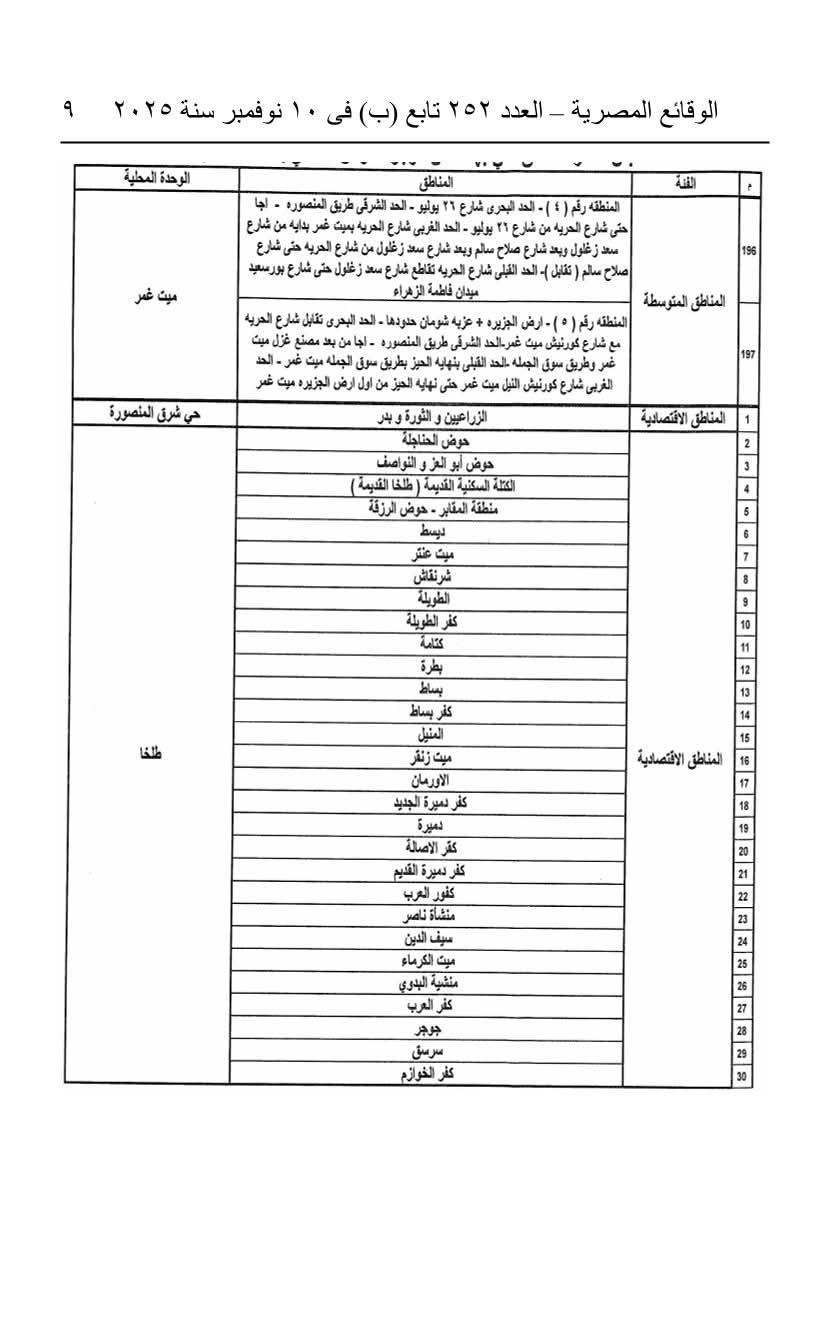 الوقائع المصرية – العدد ٢٥٢ تابع (ب) فى ١٠ نوفمبر سنة ٢٠٢٥ ٩
م الفئة المناطق الوحدة المحلية
196 المناطق المتوسطة المنطقه رقم ( ٤ ) - الحد البحرى شارع ٢٦ يوليو - الحد الشرقى طريق المنصوره - اجا
حتى شارع الحريه من شارع ٢٦ يوليو - الحد الغربى شارع الحريه بميت غمر بدايه من شارع
سعد زغلول وبعد شارع صلاح سالم وبعد شارع سعد زغلول من شارع الحريه حتى شارع
صلاح سالم ( تقابل )- الحد القبلى شارع الحريه تقاطع شارع سعد زغلول حتى شارع بورسعيد
ميدان فاطمة الزهراء
ميت غمر
197 المنطقه رقم ( ٥ ) - ارض الجزيره + عزبه شومان حدودها - الحد البحرى تقابل شارع الحريه
مع شارع كورنيش ميت غمر-الحد الشرقى طريق المنصوره - اجا من بعد مصنع غزل ميت
غمر وطريق سوق الجمله -الحد القبلى بنهايه الحيز بطريق سوق الجمله ميت غمر - الحد
الغربى شارع كورنيش النيل ميت غمر حتى نهايه الحيز من اول ارض الجزيره ميت غمر
1 المناطق الاقتصادية الزراعيين و الثورة و بدر حي شرق المنصورة
2 حوض الحناجلة
3 حوض أبو العز و النواصف
4 الكتلة السكنية القديمة ( طلخا القديمة )
5 منطقة المقابر - حوض الرزقة
6 ديسط
7 ميت عنتر
8 شرنقاش
9 الطويلة
10 كفر الطويلة
11 كتامة
12 بطرة
13 بساط
14 كفر بساط
15 المنيل
16 المناطق الاقتصادية ميت زنقر طلخا
17 الاورمان
18 كفر دميرة الجديد
19 دميرة
20 كفر الاصالة
21 كفر دميرة القديم
22 كفور العرب
23 منشأة ناصر
24 سيف الدين
25 ميت الكرماء
26 منشية البدوي
27 كفر العرب
28 جوجر
29 سرسق
30 كفر الخوازم